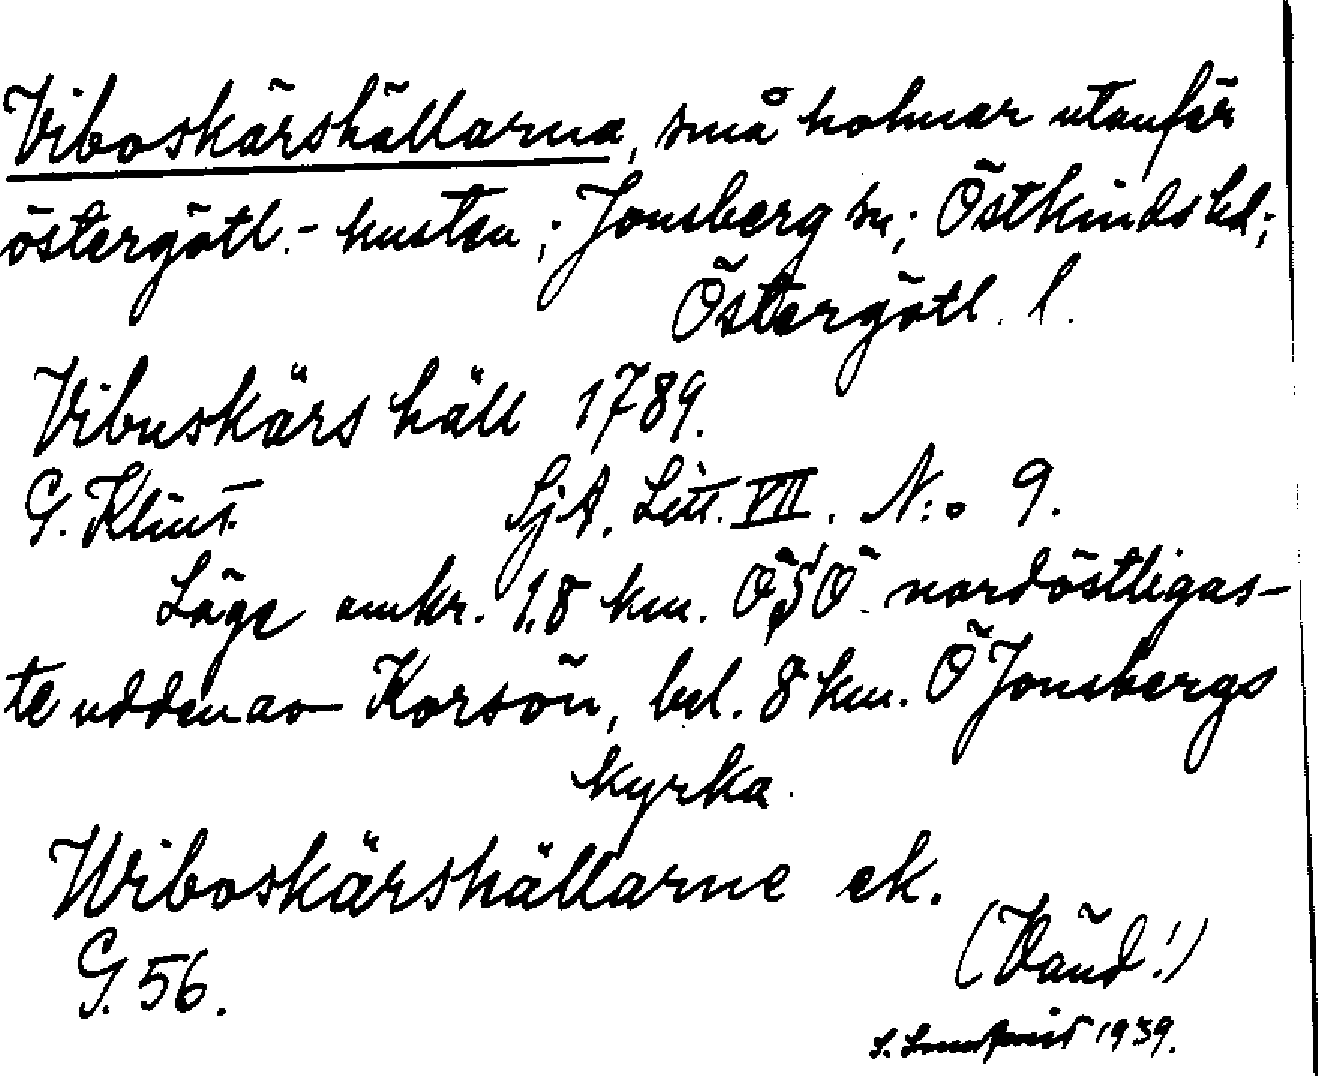 Viboskärshällarna, små holmar utanför
östergötl.- kusten; Jonsberg sn; Östkinds hd;
Östergötl. l.
Vibuskärs häll 1789.
G. Klint SjA. Litt. VII. N:o 9.
Läge omkr. 1,8 km. ÖSÖ nordöstligas-
te udden av Korsön, bel. 8 km. Ö Jonsbergs
kyrka.
Wiboskärshällarne ek.
G. 56.
(Vänd!)
S. 1939.